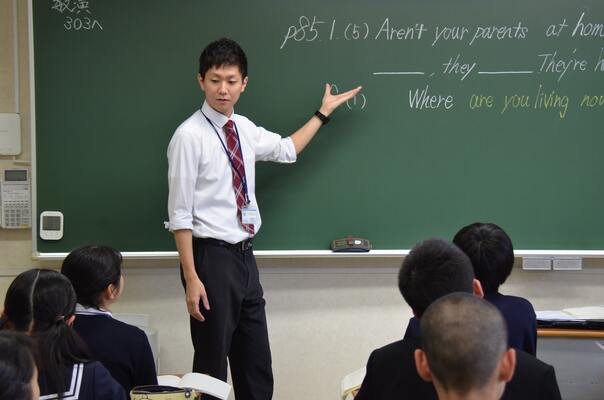 303へ
p85.1.(5) Aren't your parents at hom
____, they ____. They're h
(1) Where are you living now